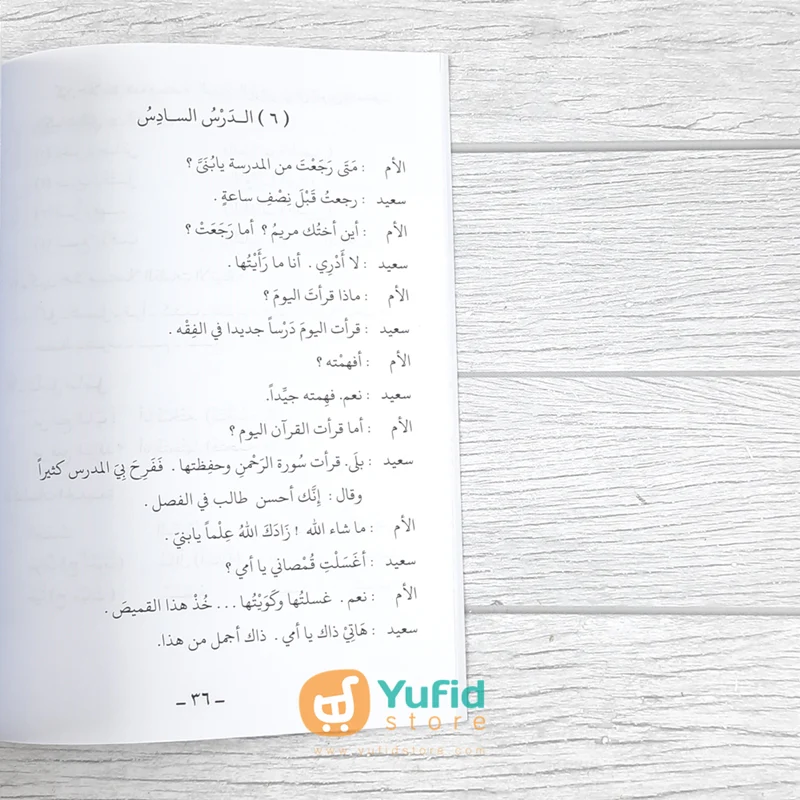 (٦) الـدَرْسُ السـادِسُ
الأم : مَتَى رَجَعْتَ من المدرسة يابُنَىَّ ؟
سعيد : رجعتُ قَبْلَ نِصْفِ ساعةٍ .
الأم : أين أختُك مريمُ ؟ أما رَجَعَتْ ؟
سعيد : لا أَدْرِي . أنا ما رَأَيْتُها .
الأم : ماذا قرأتَ اليومَ ؟
سعيد : قرأت اليومَ دَرْساً جديدا في الفِقْه .
الأم : أفهمْته ؟
سعيد : نعم. فهِمته جيِّداً.
الأم : أما قرأت القرآن اليوم ؟
سعيد : بلَى. قرأت سُورة الرَحْمنِ وحفِظتها . فَفَرِحَ بِيَ المدرس كثيراً
وقال : إِنَّك أحسن طالب في الفصل .
الأم : ما شاء الله ! زَادَكَ اللهُ عِلْماً يابنيّ .
سعيد : أغَسَلْتِ قُمْصاني يا أمي ؟
الأم : نعم . غسلتُها وكَوَيْتُها ... خُذْ هذا القميصَ .
سعيد : هَاتِيْ ذاك يا أمي . ذاك أجمل من هذا.
– ٣٦ –
Yufid
store
www.yufidstore.com